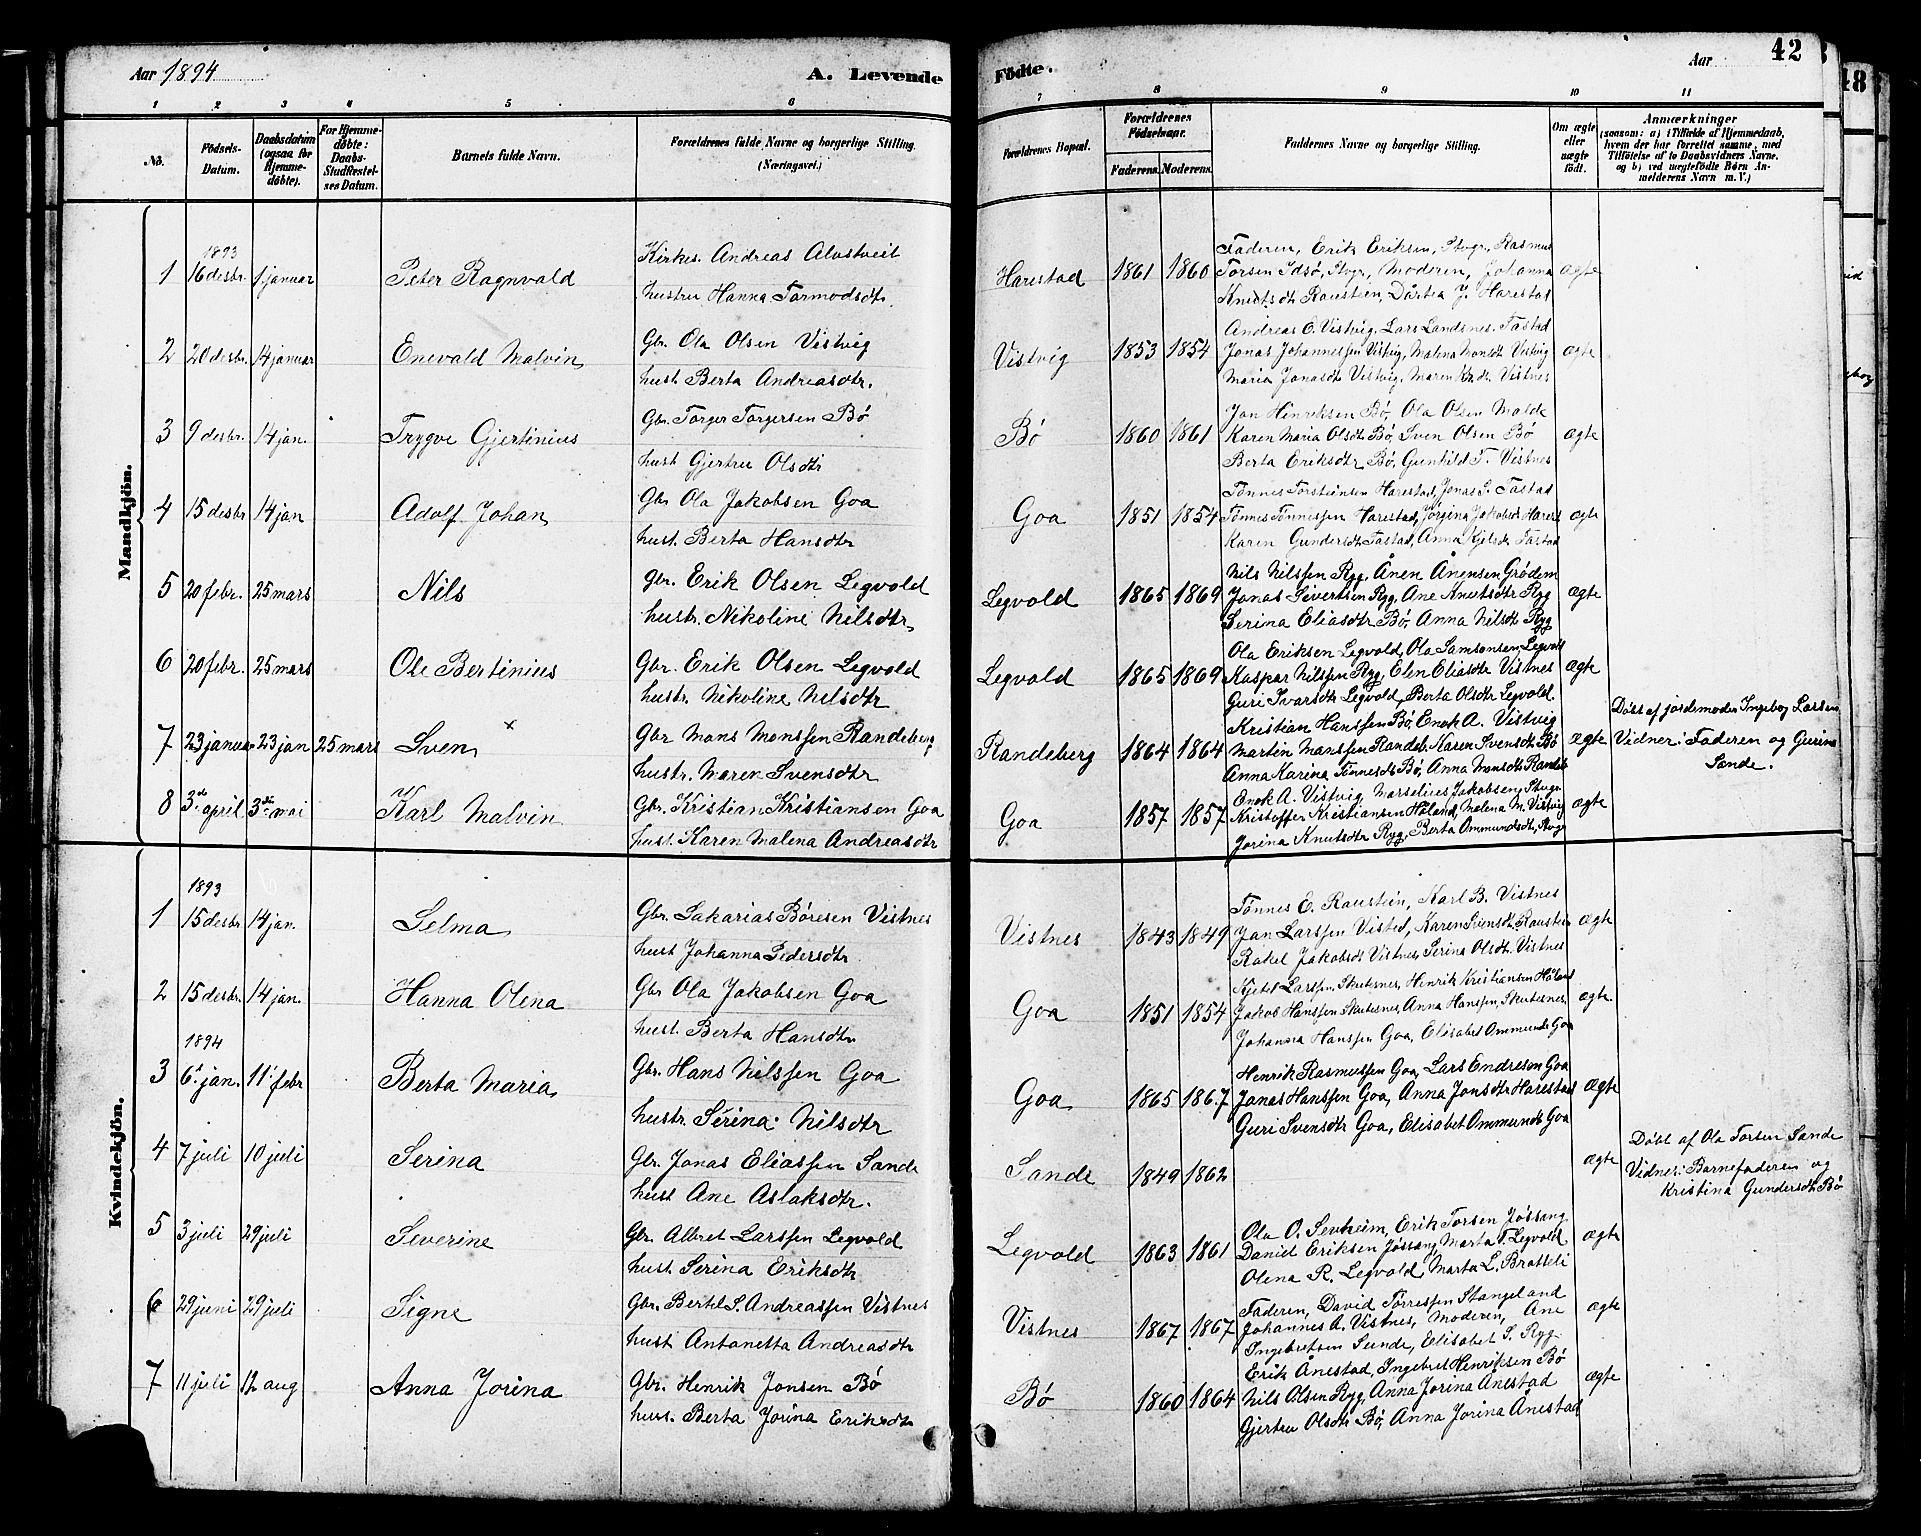 Aar 1894
A. Levende
Födte.
Aar
42
48
1 2 3 4 5 6 7 8 9 10 11
No.
Födsels-Datum.
Daabsdatum (ogsaa for Hjemmedöbte).
For Hjemmedöbte: Daabs-Stadfæstelses Datum.
Barnets fulde Navn.
Forældrenes fulde Navne og borgerlige Stilling. (Næringsvei.)
Forældrenes Bopæl.
Forældrenes Födselsaar.
Faderens. Moderens.
Faddernes Navne og borgerlige Stilling.
Om ægte eller uægte födt.
Anmærkninger (saasom: a) i Tilfælde af Hjemmedaab, hvem der har forrettet samme, med Tilföielse af to Daabsvidners Navne, og b) ved uægtefödte Börn Anmelderens Navn m. V.)
Mandkjön.
1893
1 16 desbr. 1 januar Peter Ragnvald Kirkes. Andreas Alvstveit
hustru Hanna Tormodsdtr. Harestad 1861 1860 Faderen, Erik Eriksen, Stvgr., Rasmus
Torsen Idsø, Stvgr., Moderen, Johanna ægte
Knutsdtr Raustein, Dårtea J. Harestad
2 20 desbr. 14 januar Enevald Malvin Gbr. Ola Olsen Vistvig
hust. Berta Andreasdtr. Vistvig 1853 1854 Andreas O. Vistvig, Lars Landsnes, Tastad
Jonas Johannessen Vistvig, Malena Monsdtr Vistvig ægte
Maria Jonasdtr Vistvig, Maren Kr.dtr. Vistnes
3 9 desbr. 14 jan. Trygve Gjertinius Gbr. Torger Torgersen Bö
hust Gjertru Olsdtr Bö 1860 1861 Jon Henriksen Bö, Ola Olsen Malde
Karen Maria Olsdtr Bö, Sven Olsen Bö ægte
Berta Eriksdtr Bö, Gunhild T. Vistnes
4 15 desbr 14 jan Adolf Johan Gbr Ola Jakobsen Goa
hust. Berta Hansdtr Goa 1851 1854 Tönnes Torsteinsen Harestad, Jonas S. Tastad
Tönnes Tönnessen Harestad, Jörgina Jakobsdtr Harest ægte
Karen Gundersdtr Tastad, Anna Kjelsdtr Tastad
5 20 febr. 25 mars Nils Gbr. Erik Olsen Legvold
hustr. Nikoline Nilsdtr Legvold 1865 1869 Nils Nilssen Ryg, Ånen Ånensen Grödem
Jonas Sivertsen Ryg, Ane Knutsdtr Ryg ægte
Serina Eliasdtr Bö, Anna Nilsdtr Ryg
6 20 febr. 25 mars Ole Bertinius Gbr. Erik Olsen Legvold
hustr. Nikoline Nilsdtr Legvold 1865 1869 Ola Eriksen Legvold, Ola Samsonsen Legvold
Kaspar Nilssen Ryg, Elen Eliasdtr Vistnes ægte
Guri Ivarsdtr Legvold, Berta Olsdtr Legvold.
7 23 januar 23 jan 25 mars Sven x Gbr Mons Monssen Randeberg
hustr. Maren Svensdtr Randeberg 1864 1864 Kristian Hanssen Bö, Enok A. Vistvig
Martin Monssen Randeb. Karen Svensdtr Bö ægte
Anna Karina Tönnesdtr Bö, Anna Monsdtr Randeb
Döbt af jordemoder Ingebog Larsen
Vidner: Faderen og Gurina
Sande.
8 3de april 3de mai Karl Malvin Gbr. Kristian Kristiansen Goa
hust. Karen Malena Andreasdtr Goa 1857 1857 Enok A. Vistvig, Marselius Jakobsen, Stvgr
Kristoffer Kristiansen Håland, Malena M. Vistvig ægte
Jorina Knutsdtr Ryg, Berta Ommundsdtr, Stvgr
Kvindekjön.
1893
1 15 desbr 14 jan. Selma Gbr. Sakarias Böresen Vistnes
hust Johanna Pedersdtr Vistnes 1843 1849 Tönnes E. Raustein, Karl B. Vistnes
Jan Larssen Visted, Karen Svensdtr Raustein ægte
Rakel Jakobsdtr Vistnes, Serina Olsdtr. Vistnes
2 15 desbr. 14 jan. Hanna Olena Gbr Ola Jakobsen Goa
hust. Berta Hansdtr Goa 1851 1854 Kjetel Larssen, Skutesnes, Henrik Kristiansen Håland
Jakob Hanssen Skutesnes, Anna Hanssen, Skutesnes ægte
Johanna Hanssen Goa, Elisabet Ommunds Goa
1894
3 6. jan. 11 febr Berta Maria Gbr. Hans Nilssen Goa
hustr. Serina Nilsdtr Goa 1865 1867 Henrik Rasmussen Goa, Lars Endresen Goa
Jonas Hanssen Goa, Anna Jonsdtr Harestad ægte
Guri Svensdtr Goa, Elisabet Ommundsdtr Goa
4 7 juli 10 juli Serina Gbr. Jonas Eliassen Sande
hust Ane Aslaksdtr. Sande 1849 1862 ægte
Döbt af Ola Torsen Sande
Vidner: Barnefaderen og
Kristina Gundersdtr Bö
5 3 juli 29 juli Severine Gbr Albret Larssen Legvold
hust. Serina Eriksdtr Legvold 1863 1861 Ola O. Sevheim, Erik Torsen Jössang
Daniel Eriksen Jössang, Marta T. Legvold ægte
Olena R. Legvold, Marta L. Bratteli
6 29 juni 29 juli Signe Gbr. Bertel S. Andreassen Vistnes
hust Antonetta Andreasdtr Vistnes 1867 1867 Faderen, David Torressen Stangeland
Johannes A. Vistnes, Moderen, Ane ægte
Ingebretsen Sunde, Elisabet S. Ryg.
7 11 juli 12 aug Anna Jorina Gbr. Henrik Jonsen Bö
hust. Berta Jorina Eriksdtr Bö 1860 1864 Erik Ånestad, Ingebret Henriksen Bö
Nils Olsen Ryg, Anna Jorina Ånestad ægte
Gjertru Olsdtr Bö, Anna Jorina Ånestad